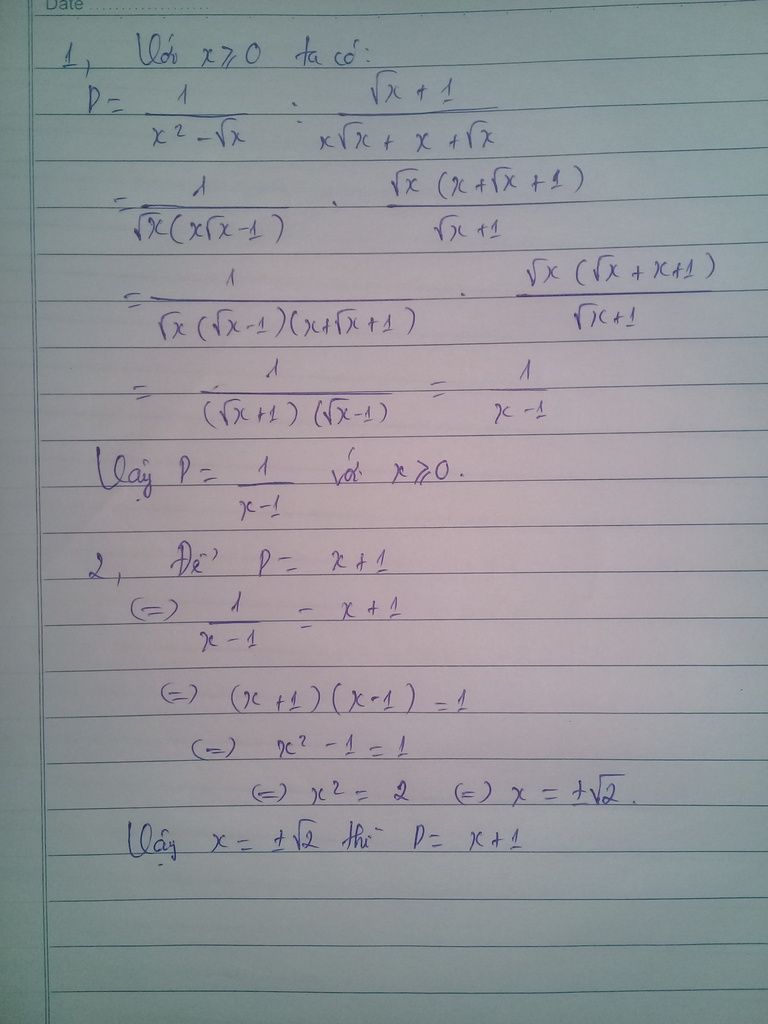 Date ....................
1, Với x ⩾ 0 ta có:
P = 1/(x² - √x) : (√x + 1)/(x√x + x + √x)
= 1/(√x(x√x - 1)) . (√x (x + √x + 1))/(√x + 1)
= 1/(√x (√x - 1)(x + √x + 1)) . (√x (√x + x + 1))/(√x + 1)
= 1/((√x + 1) (√x - 1)) = 1/(x - 1)
Vậy P = 1/(x - 1) với x ⩾ 0.
2, Để P = x + 1
(=) 1/(x - 1) = x + 1
(=) (x + 1)(x - 1) = 1
(=) x² - 1 = 1
(=) x² = 2 (=) x = ±√2.
Vậy x = ±√2 thì P = x + 1